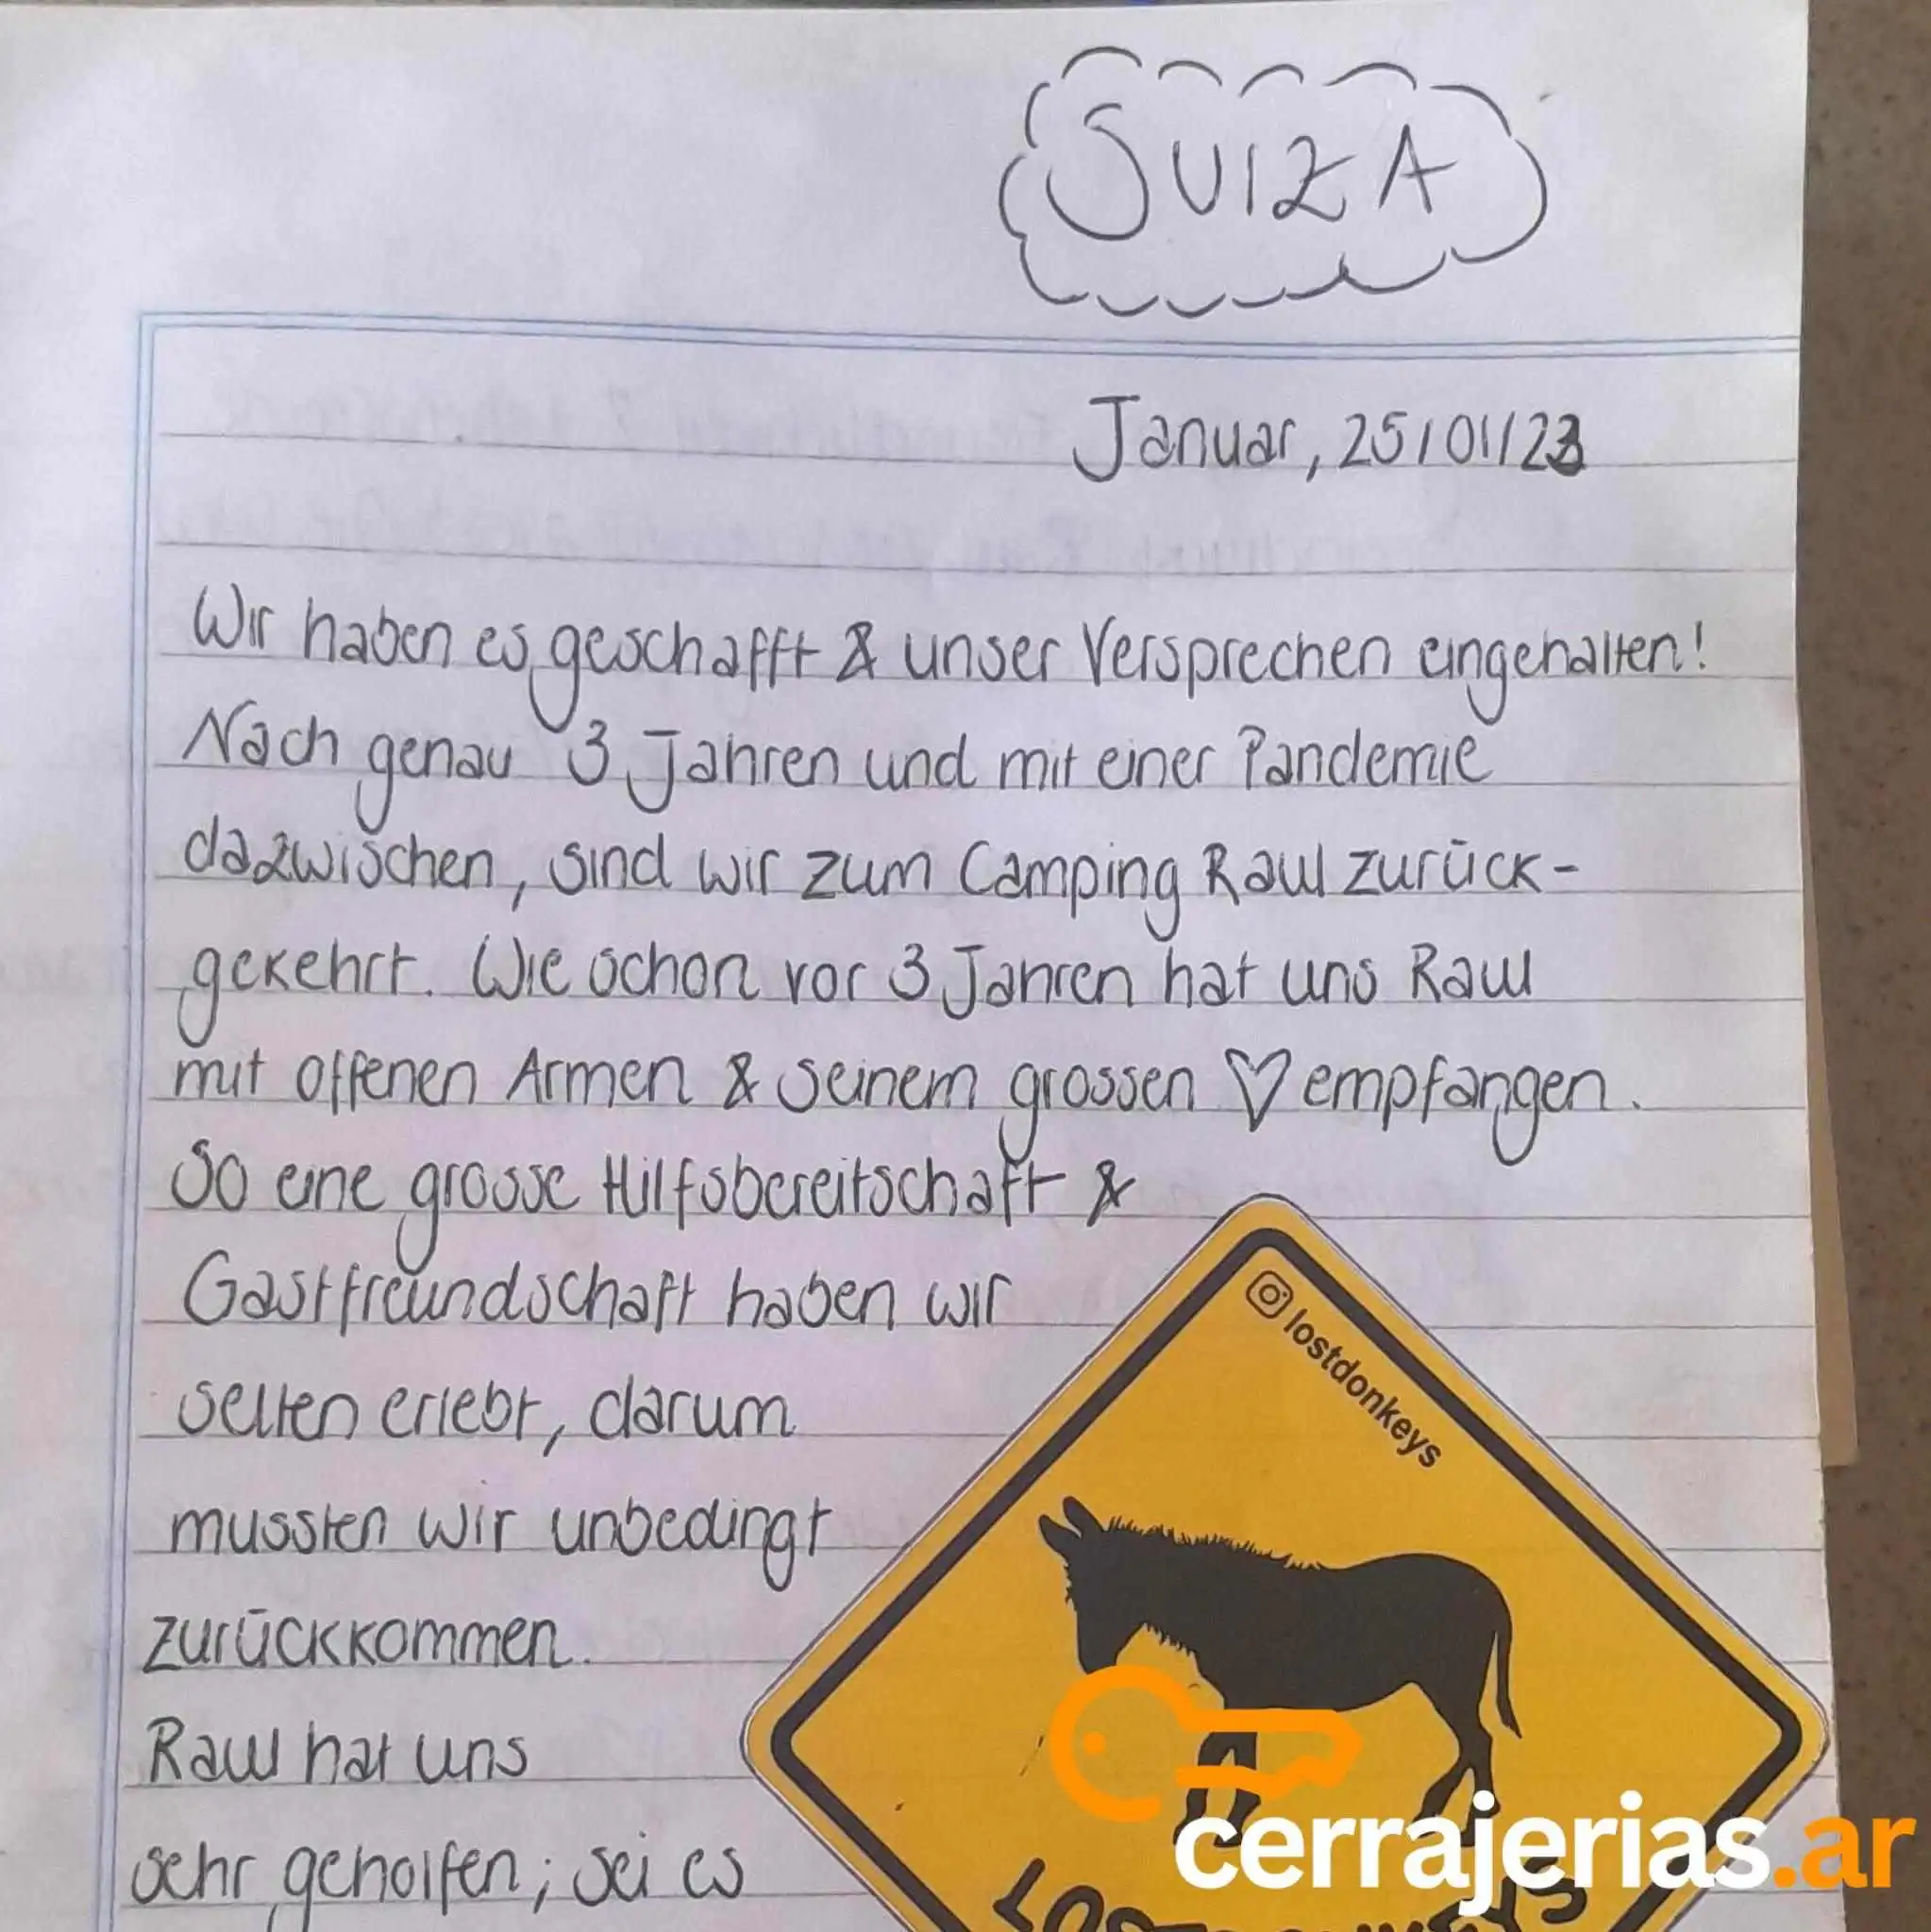 SUIZA
Januar, 25/01/23
Wir haben es geschafft & unser Versprechen eingehalten!
Nach genau 3 Jahren und mit einer Pandemie
dazwischen, sind wir zum Camping Raul zurück-
gekehrt. Wie schon vor 3 Jahren hat uns Raul
mit offenen Armen & seinem grossen ♡ empfangen.
So eine grosse Hilfsbereitschaft &
Gastfreundschaft haben wir
selten erlebt, darum
mussten wir unbedingt
zurückkommen.
Raul hat uns
sehr geholfen; sei es
lostdonkeys
cerrajerias.ar